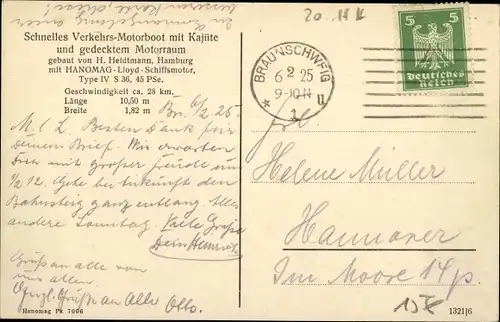 in Ermangelung einer
besseren Karte diese!
Schnelles Verkehrs-Motorboot mit Kajüte
und gedecktem Motorraum
gebaut von H. Heidtmann, Hamburg
mit HANOMAG-Lloyd-Schiffsmotor,
Type IV S 36, 45 PSe.
Geschwindigkeit ca. 28 km.
Länge 10,50 m
Breite 1,82 m
Br. 6/2. 25.
M. L. Besten Dank für
Deinen Brief. Wir erwarten
Dich mit großer Freude um
Gehe bei Ankunft den
Bahnsteig ganz entlang. Alles
andere Sonntag. Viele Grüße
Dein Heinrich
Grüße an alle von
uns allen.
Herzl. Grüße an Alle Otto.
Hanomag Pk 7006
BRAUNSCHWEIG
6 2 25
9-10 N
* 1 u
5 5
Deutsches
Reich
Frl.
Helene Müller
Hannover
Im Moore 14 p.
1321|6